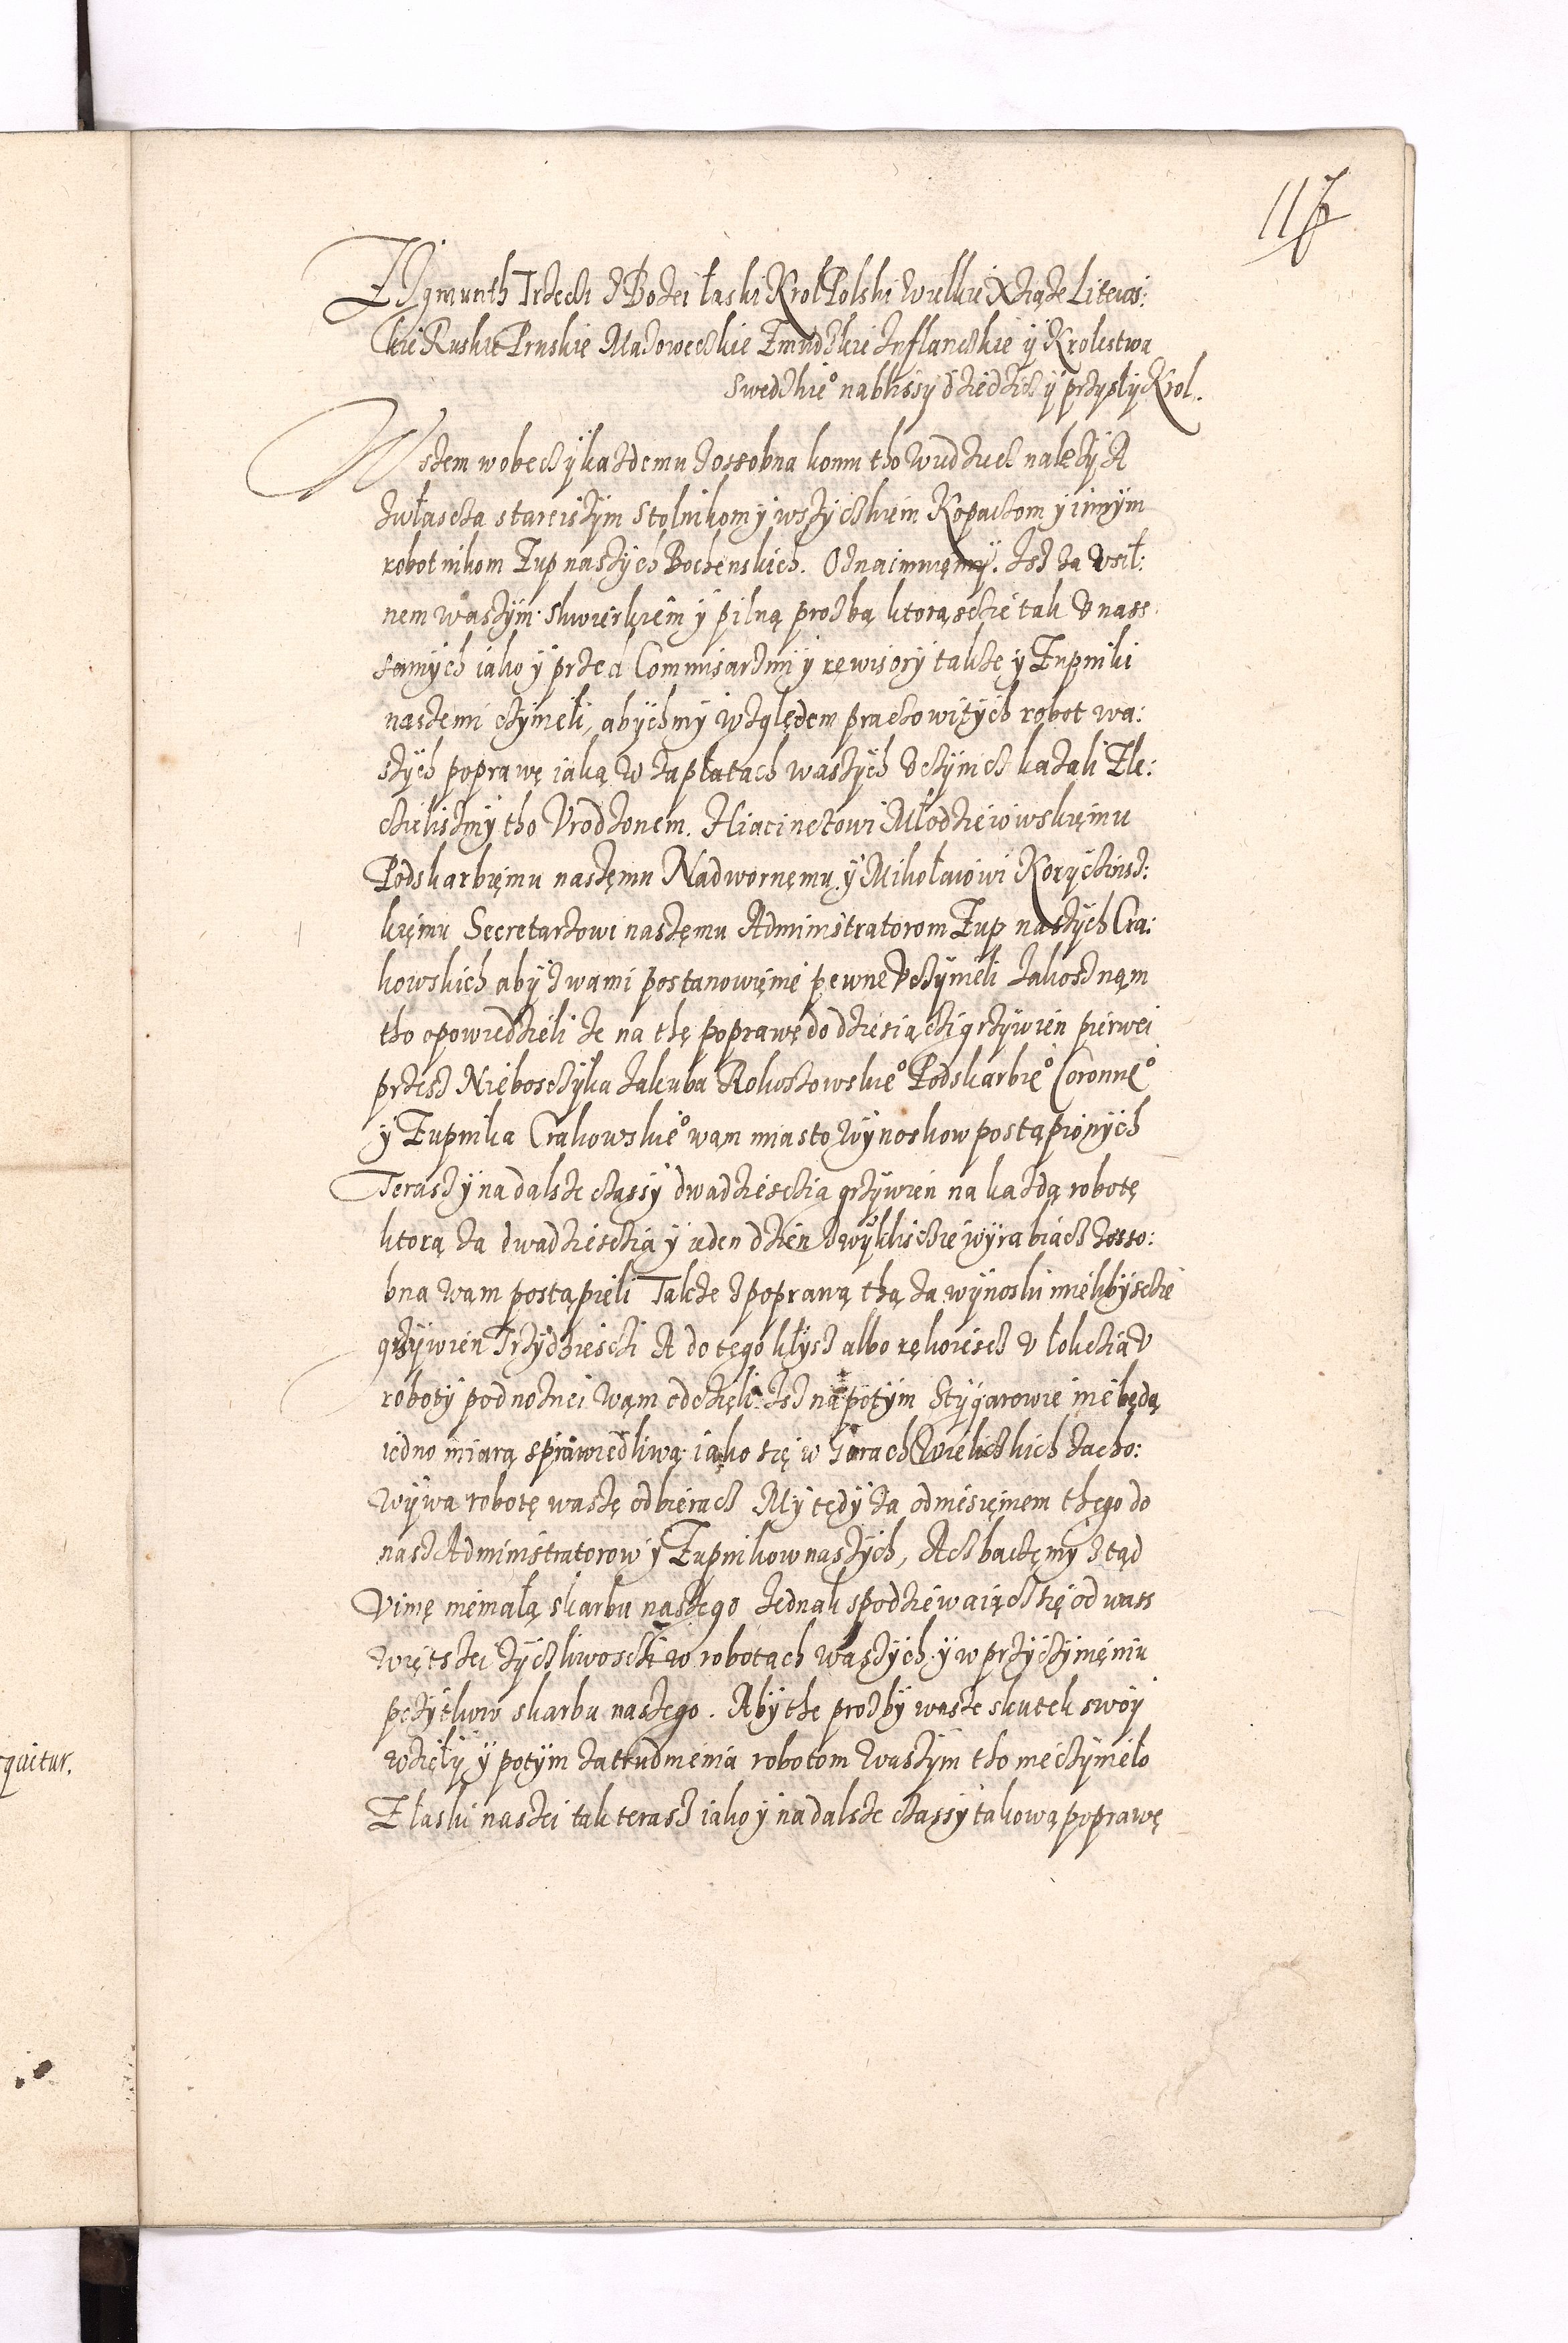 117
Zÿgmunth Trzeci z Bozei łaski Krol Polski Wielkie Xiąze Litews:
kie Ruskie Pruskie Mazoweczkie Zmudzkie Inflanczkie ÿ Krolestwa
Swedzkie° nablissy dziedzicz ÿ przysłÿ Krol.
Wszem wobecz ÿ kazdemu zossobna komu tho wiedziecz nalezÿ A
zwłascza stareiszÿm Stolnikom ÿ wszÿczkiem Kopaczom ÿ innÿm
robotnikom Zup naszÿch Bochenskich. Oznaimuięmÿ. Isz za vsił:
nem waszÿm skwierkięm ÿ pilną prozbą ktorąsczie tak v nass
samÿch iako ÿ przed Commisarzmi ÿ rewisorÿ takze ÿ Zupniki
naszemi czÿnieli, abÿchmÿ względem praczowitÿch robot wa:
szÿch poprawę iaką w zapłatach waszÿch vczÿnicz kazali Zle:
czieliszmÿ tho Vrodzonem. Hiacinctowi Młodzieiowskięmu
Podskarbięmu naszęmu Nadwornęmu ÿ Mikołaiowi Korÿczinsz:
kięmu Secretarzowi naszęmu Administratorom Zup naszÿch Cra:
kowskich abÿ z wami postanowięnie pewne vczÿnieli Iakosz nąm
tho opowiedzieli ze na thę poprawę do dziesiączi grzÿwien pierwei
przesz Nieboszczÿka Iakuba Rokoszowskie° Podskarbie° Coronne°
ÿ Zupnika Crakowskie° wąm miasto wÿnoskow postąpionÿch
Terasz ÿ na dalsze czassÿ dwadziesczia grzÿwien na kazdą robotę
ktorą za dwadziesczia ÿ ieden dzien zwÿkliśczie wÿrabiacz zosso:
bna wąm postąpieli Takze z poprawą thą za wÿnoski mielibÿsczie
grzÿwien Trzÿdziesci A do tego kłÿsz albo rękoiescz v łokczia v
robotÿ podnoznei wąm odczięli. Isz napotÿm Stÿgarowie nie będą
iedno miarą sprawiedliwą iako się w Gorach Wieliczkich zacho:
wÿwa robotę waszę odbieracz Mÿ tędÿ za odniesięniem thego do
nasz Administratorow ÿ Zupnikow naszÿch, Acz baczęmÿ ztąd
Vimę niemałą skarbu naszego Iednak spodziewaiącz się od wass
więtszei zÿczliwosczi w robotach waszÿch ÿ w przÿczÿnięniu
pozÿtkow skarbu naszego. Abÿ the prozbÿ wasze skutek swoÿ
wzięłÿ ÿ potÿm zatrudnienia robotom waszÿm tho nieczÿnieło
Z łaski naszei tak terasz iako ÿ na dalsze czassÿ takową poprawę
quitur.